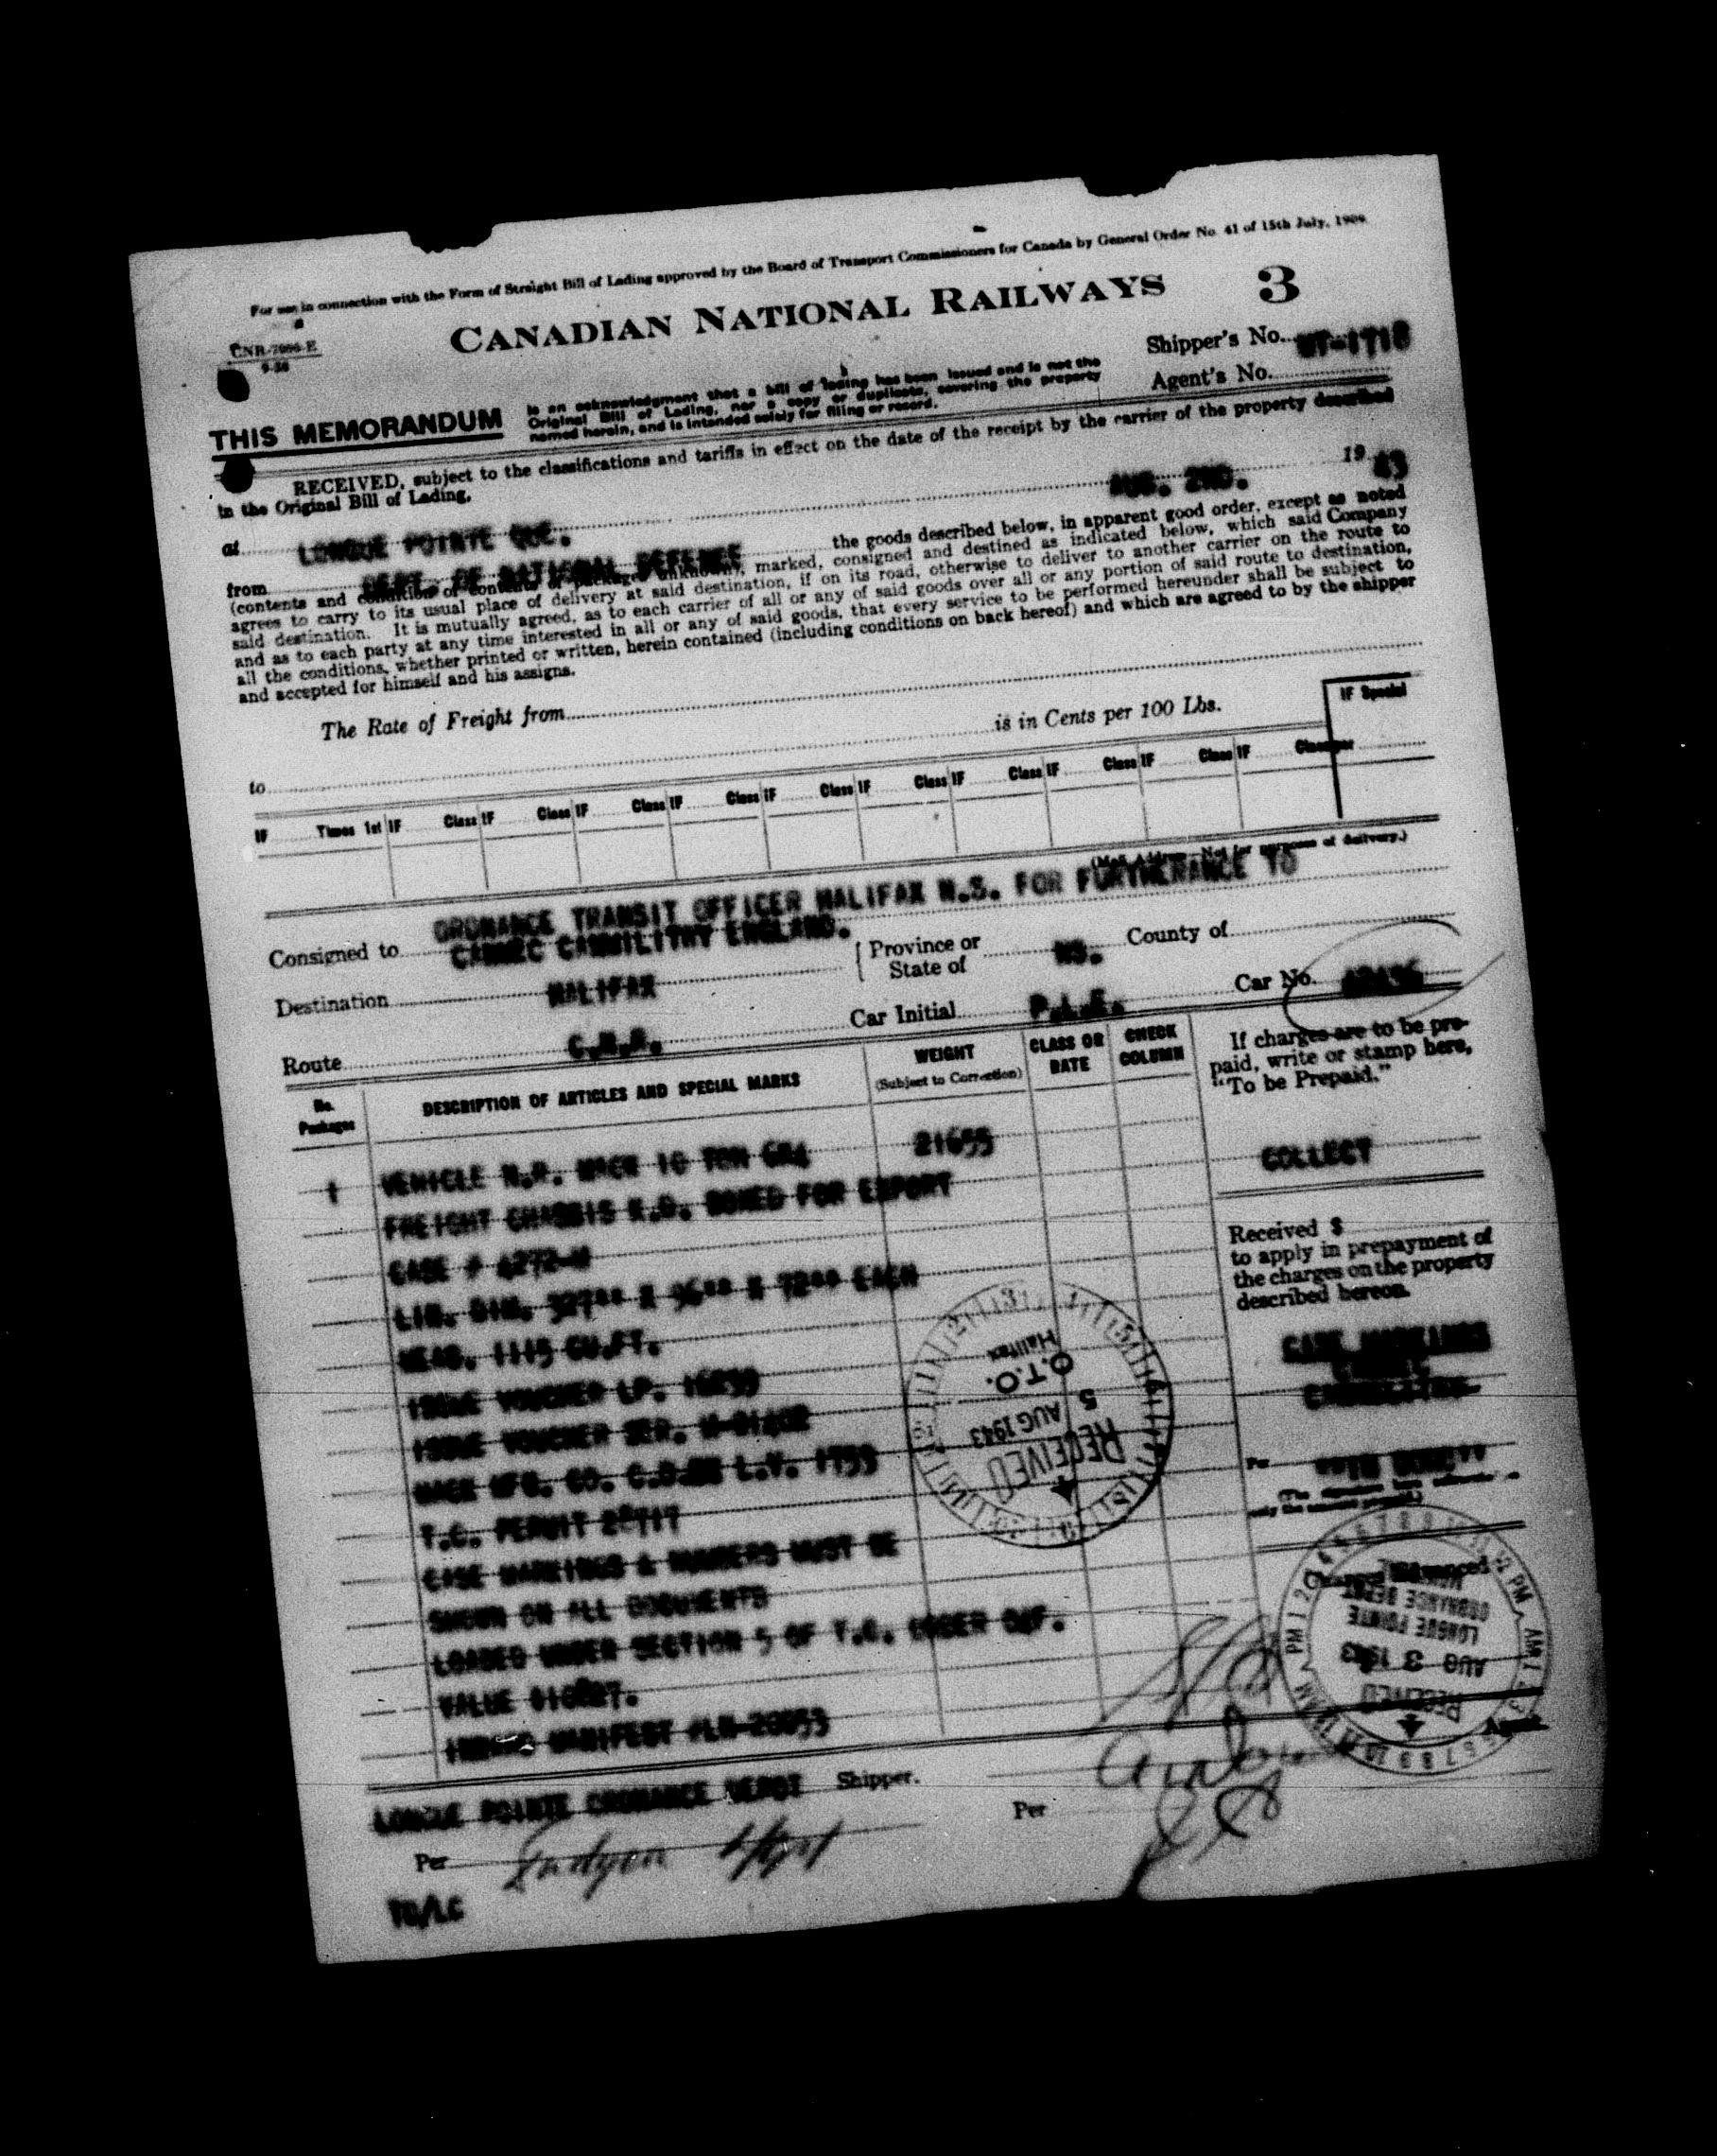 For use in connection with the Form of Straight Bill of Lading approved by the Board of Transport Commissioners for Canada by General Order No. 41 of 15th July, 1909.
CANADIAN NATIONAL RAILWAYS 3
9-38
Shipper's No. MT-1718
Agent's No.
THIS MEMORANDUM
is an acknowledgment that a bill of lading has been issued and is not the
Original Bill of Lading, nor a copy or duplicate, covering the property
named herein, and is intended solely for filing or record.
RECEIVED, subject to the classifications and tariffs in effect on the date of the receipt by the carrier of the property described
in the Original Bill of Lading,
AUG. 2ND. 19 43
at LONGUE POINTE QUE.
from DEPT. OF NATIONAL DEFENCE the goods described below, in apparent good order, except as noted
(contents and condition of contents of packages unknown), marked, consigned and destined as indicated below, which said Company
agrees to carry to its usual place of delivery at said destination, if on its road, otherwise to deliver to another carrier on the route to
said destination. It is mutually agreed, as to each carrier of all or any of said goods over all or any portion of said route to destination,
and as to each party at any time interested in all or any of said goods, that every service to be performed hereunder shall be subject to
all the conditions, whether printed or written, herein contained (including conditions on back hereof) and which are agreed to by the shipper
and accepted for himself and his assigns.
The Rate of Freight from
to is in Cents per 100 Lbs.
IF Special
IF Times 1st IF Class IF Class IF Class IF Class IF Class IF Class IF Class IF Class IF Class IF Class per
(Mail Address—Not for purposes of delivery.)
Consigned to ORDNANCE TRANSIT OFFICER HALIFAX N.S. FOR FURTHERANCE TO
ENGLAND.
Destination HALIFAX Province or State of NS. County of
Route C.N.R. Car Initial P.L.E. Car No.
No. Packages
DESCRIPTION OF ARTICLES AND SPECIAL MARKS
WEIGHT
(Subject to Correction)
CLASS OR RATE
CHECK COLUMN
If charges are to be pre-
paid, write or stamp here,
"To be Prepaid."
COLLECT
1 VEHICLE N.R. MACK 10 TON 6X4 21655
FREIGHT CHASSIS K.D. BOXED FOR EXPORT
CASE # 4272-M
LIN. DIM. 327" X 96" X 72" EACH
MEAS. 1115 CU.FT.
ISSUE VOUCHER LP.
ISSUE VOUCHER SER.
MACK MFG. CO. L.V. 1799
T.C. PERMIT
CASE MARKINGS & NUMBERS MUST BE
SHOWN ON ALL DOCUMENTS
LOADED UNDER SECTION 5 OF T.C. ORDER
VALUE
MANIFEST
Received $
to apply in prepayment of
the charges on the property
described hereon.
CASE MARKINGS
Per
Charges Advanced
RECEIVED
5 AUG 1943
O.T.O.
Halifax
RECEIVED
AUG 3 1943
LONGUE POINTE
ORDNANCE DEPOT
LONGUE POINTE ORDNANCE DEPOT Shipper.
Agent.
Per
Per
TG/LC